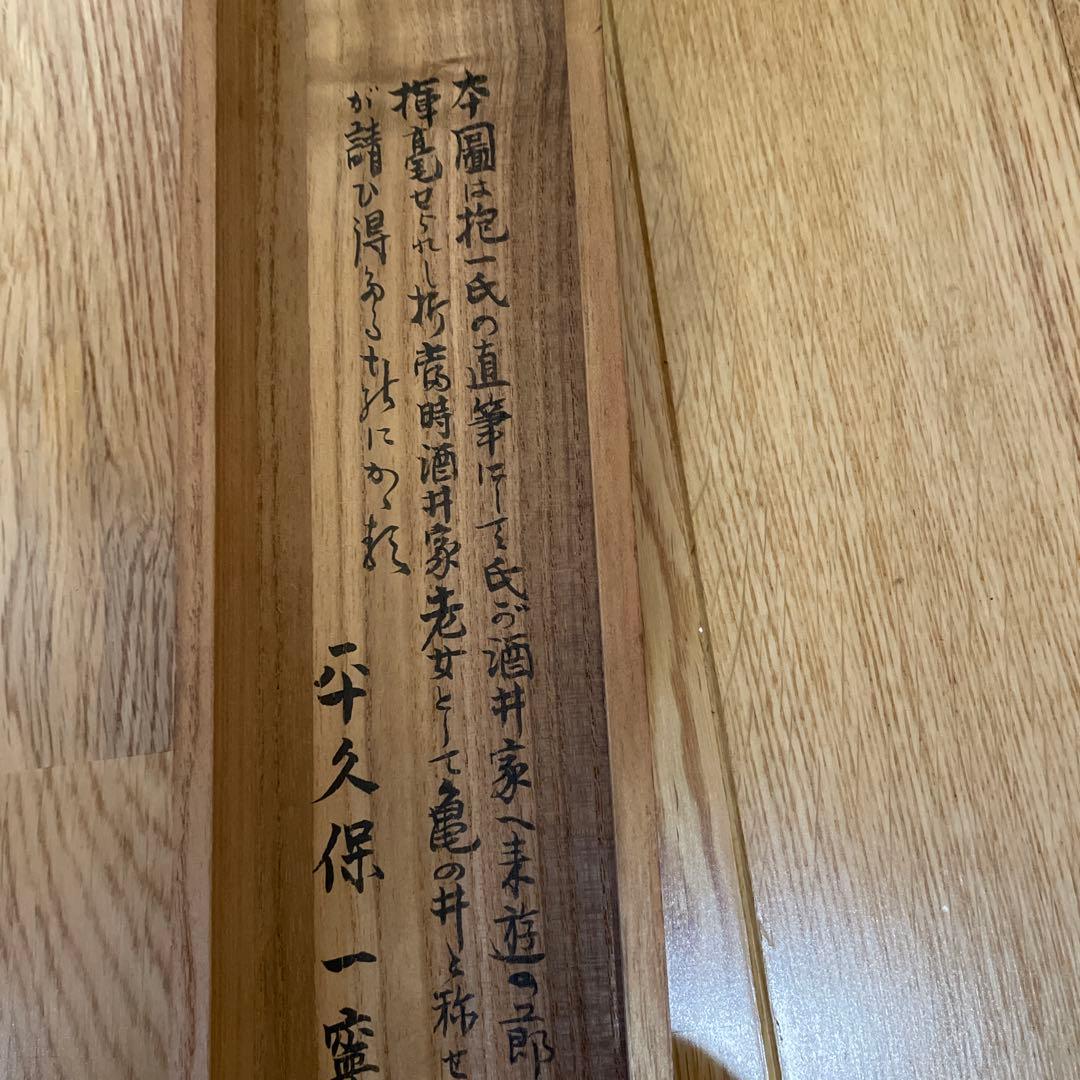 本圖は抱一氏の直筆にして氏が酒井家へ来遊の
揮毫せられし折當時酒井家老女として亀の井と称せ
が請ひ得たるものにかゝる
平久保一